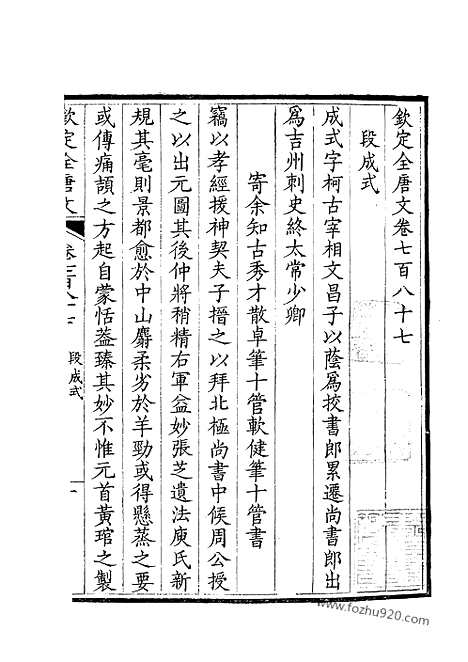 欽定全唐文卷七百八十七
段成式
成式字柯古宰相文昌子以蔭爲挍書郎累遷尚書郎出
爲吉州刺史終太常少卿
寄余知古秀才散卓筆十管軟健筆十管書
竊以孝經援神契夫子搢之以拜北極尚書中候周公授
之以出元圖其後仲將稍精右軍益妙張芝遺法庾氏新
規其毫則景都愈於中山麝柔劣於羊勁或得懸蒸之要
或傳痛頡之方起自蒙恬葢臻其妙不惟元首黃琯之製
欽定全唐文
段成式
www.fozhu920.com